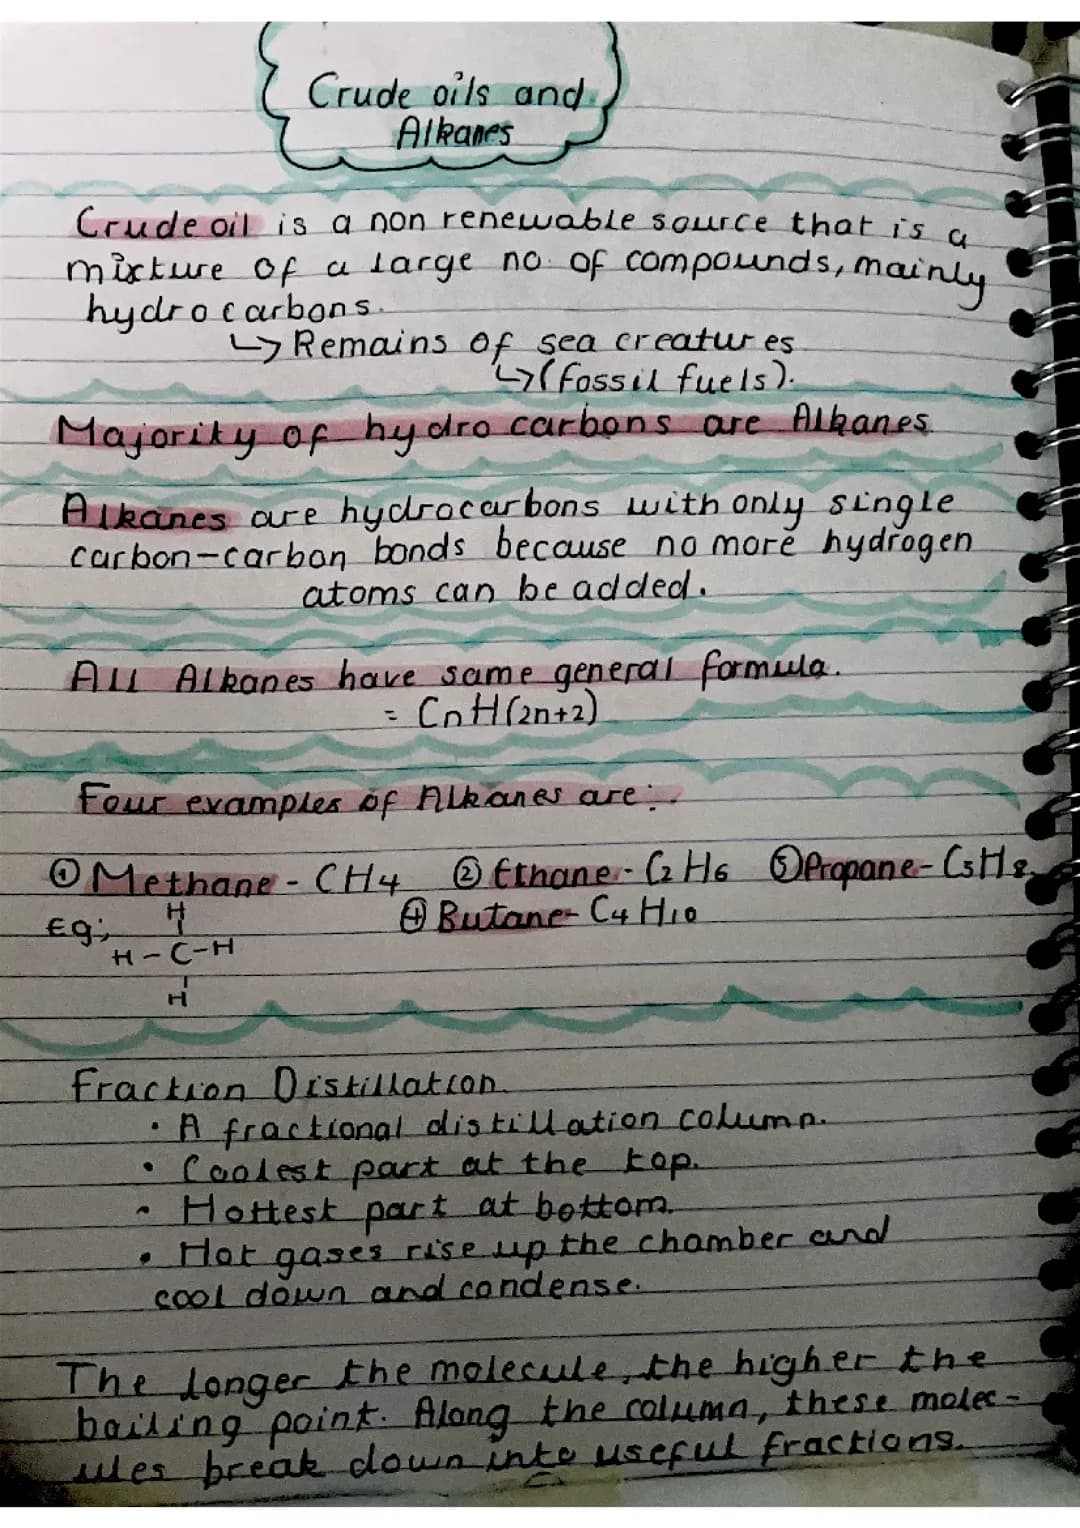 Crude oils and
Alkanes
Crude oil is a non renewable source that is a
mixture of a large no. of compounds, mainly
hydrocarbons.
↳ Remains of sea creatures
↳ (fossil fuels).
Majority of hydrocarbons are Alkanes
Alkanes are hydrocarbons with only single
carbon-carbon bonds because no more hydrogen
atoms can be added.
All Alkanes have same general formula.
= CnH(2n+2)
Four examples of Alkanes are:.
① Methane - CH4 ② Ethane - C2H6 ③ Propane - C3H8
④ Butane - C4H10
Eg;
H
H-C-H
H
Fraction Distillation
• A fractional distillation column.
• Coolest part at the top.
• Hottest part at bottom.
• Hot gases rise up the chamber and
cool down and condense.
The longer the molecule, the higher the
boiling point. Along the column, these molec-
ules break down into useful fractions.